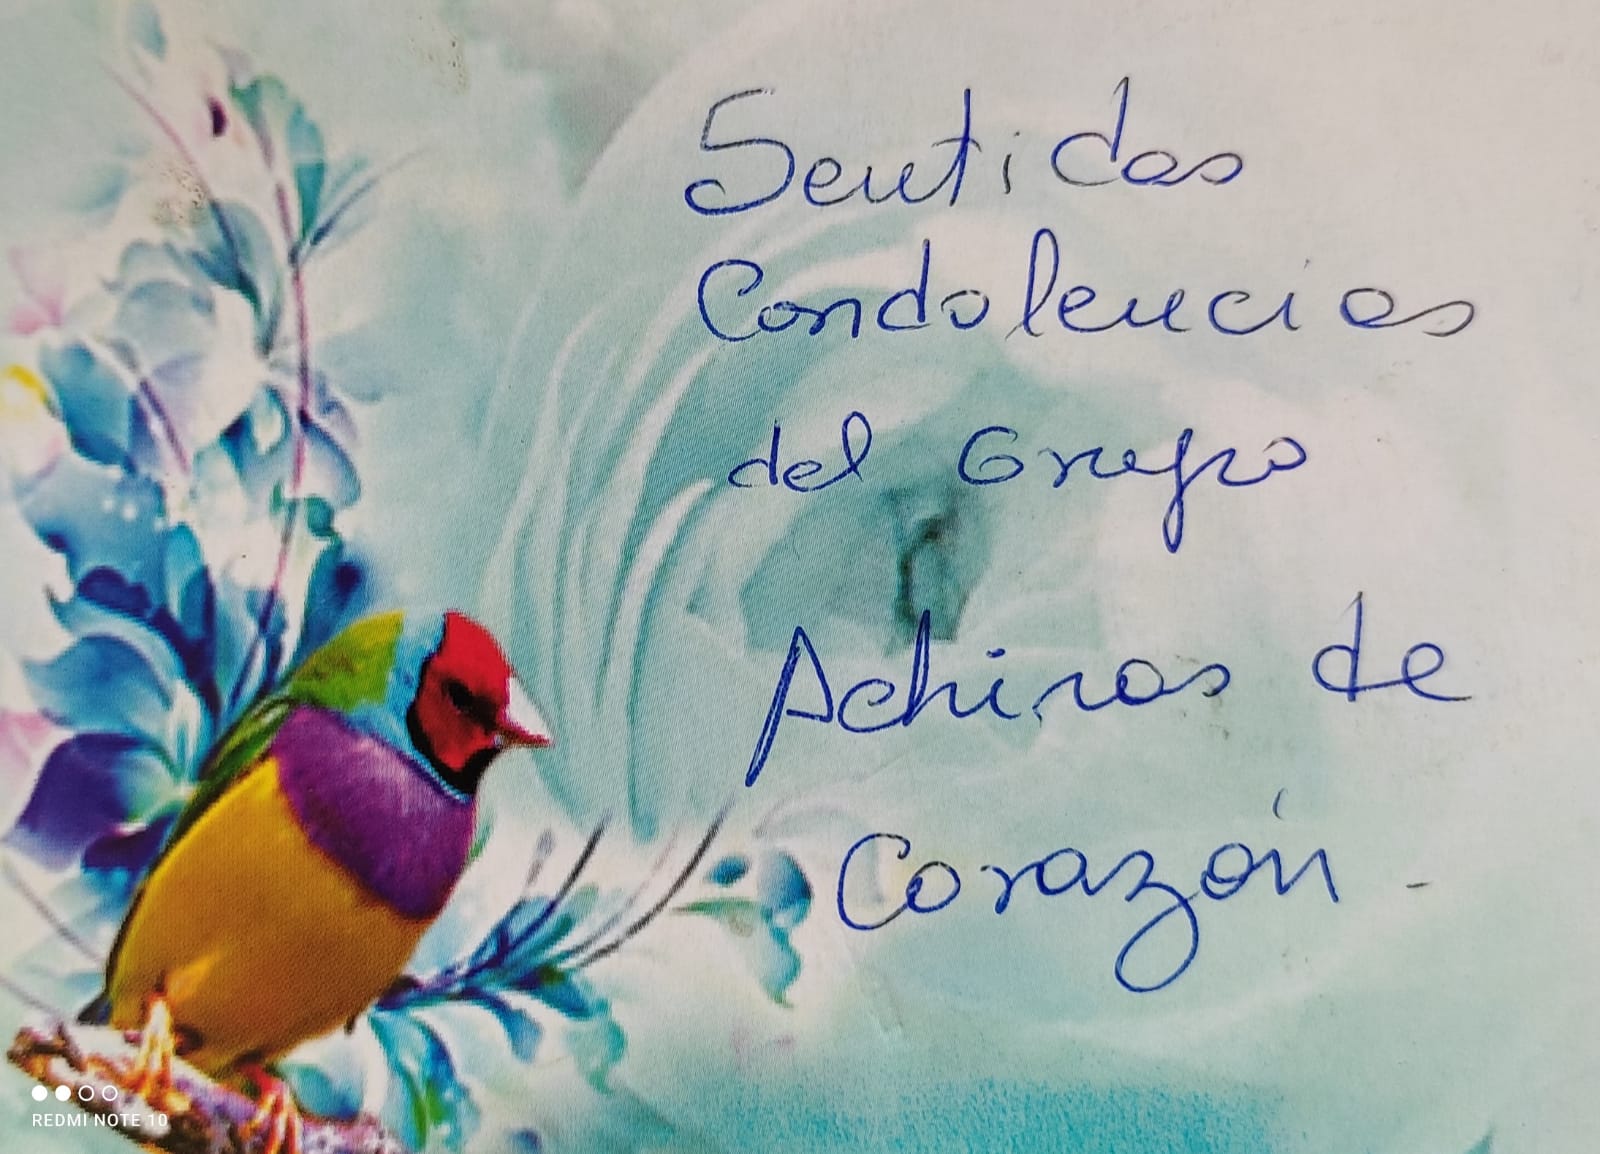 Sentidas
Condolencias
del Grupo
Achiras de
Corazón.
REDMI NOTE 10